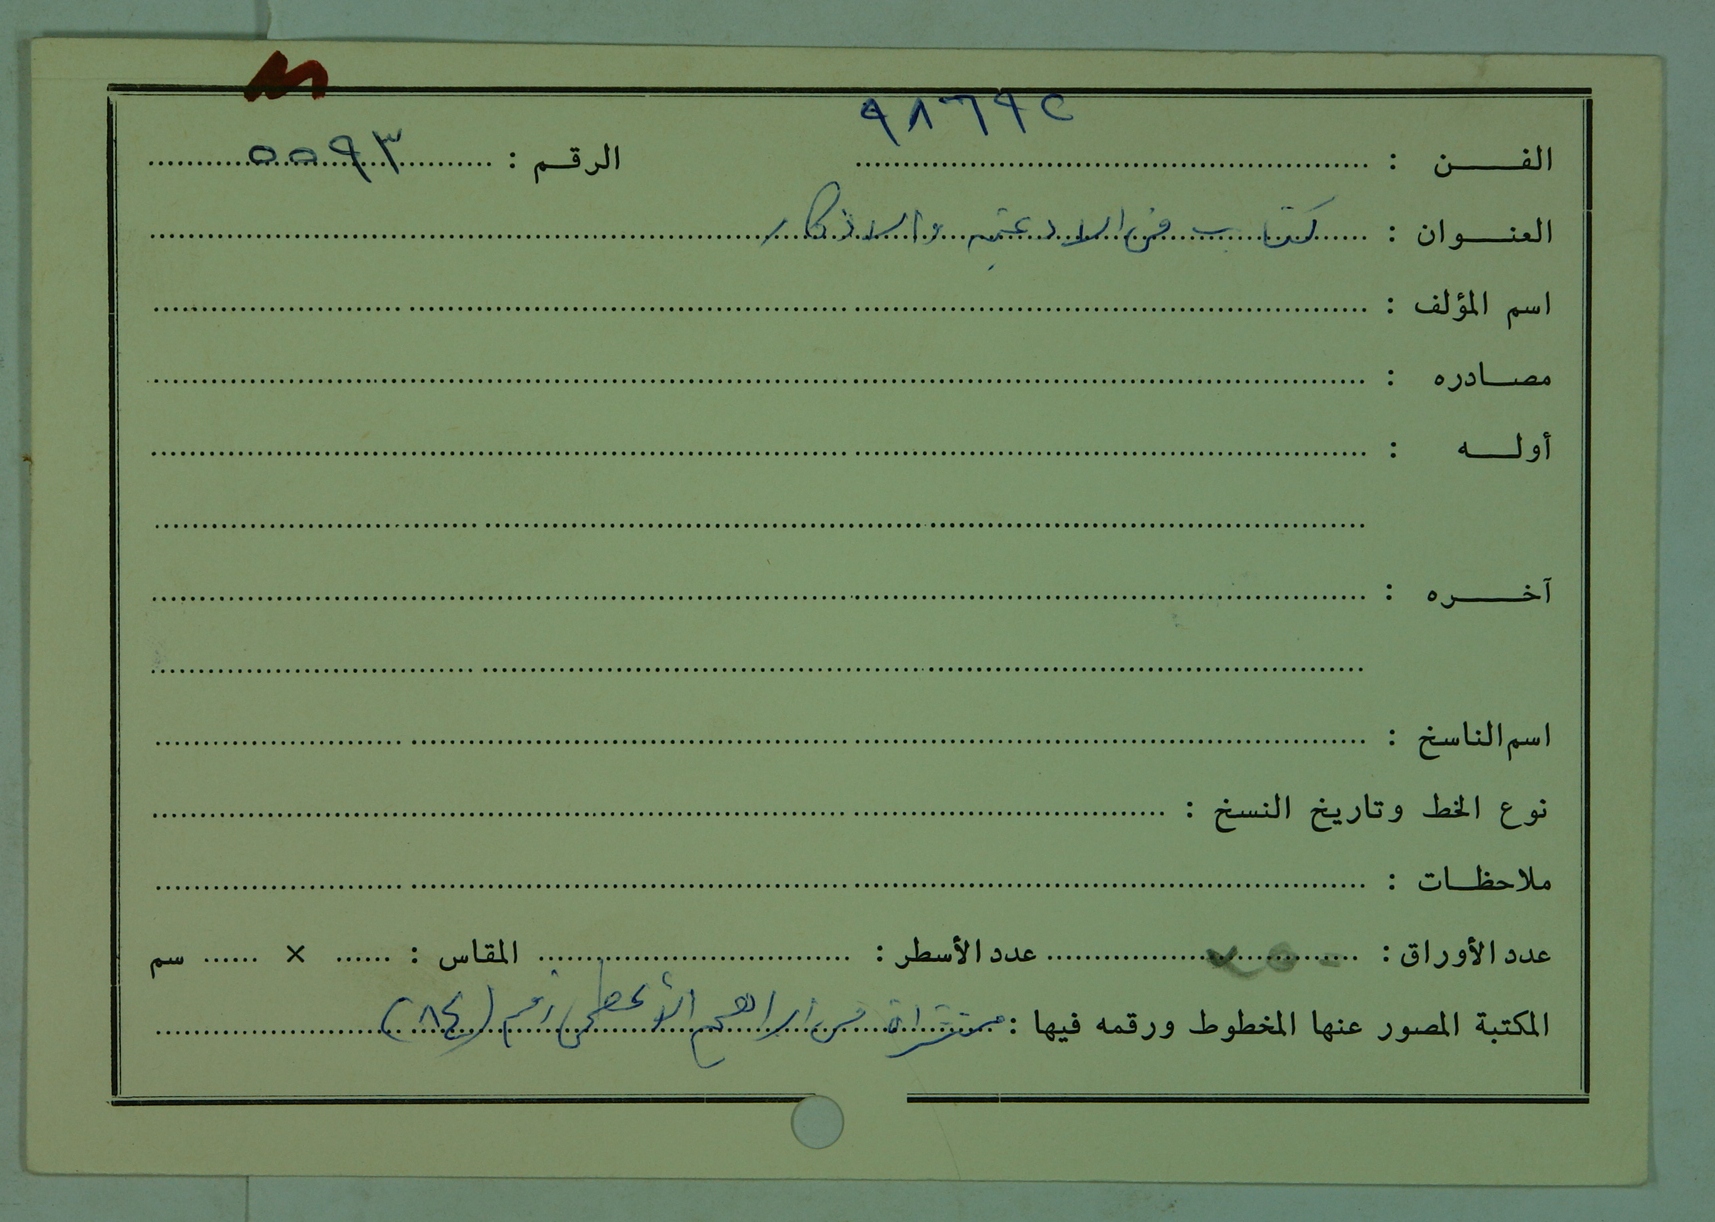 ٩٨٦٩٢
الفن : الرقم : ٥٥٩٣
العنوان : كتاب في الادعية والاذكار
اسم المؤلف :
مصادره :
أوله :
آخره :
اسم الناسخ :
نوع الخط وتاريخ النسخ :
ملاحظات :
عدد الأوراق : عدد الأسطر : المقاس : × سم
المكتبة المصور عنها المخطوط ورقمه فيها : مشتراة من ابراهيم رقم (٨٤)